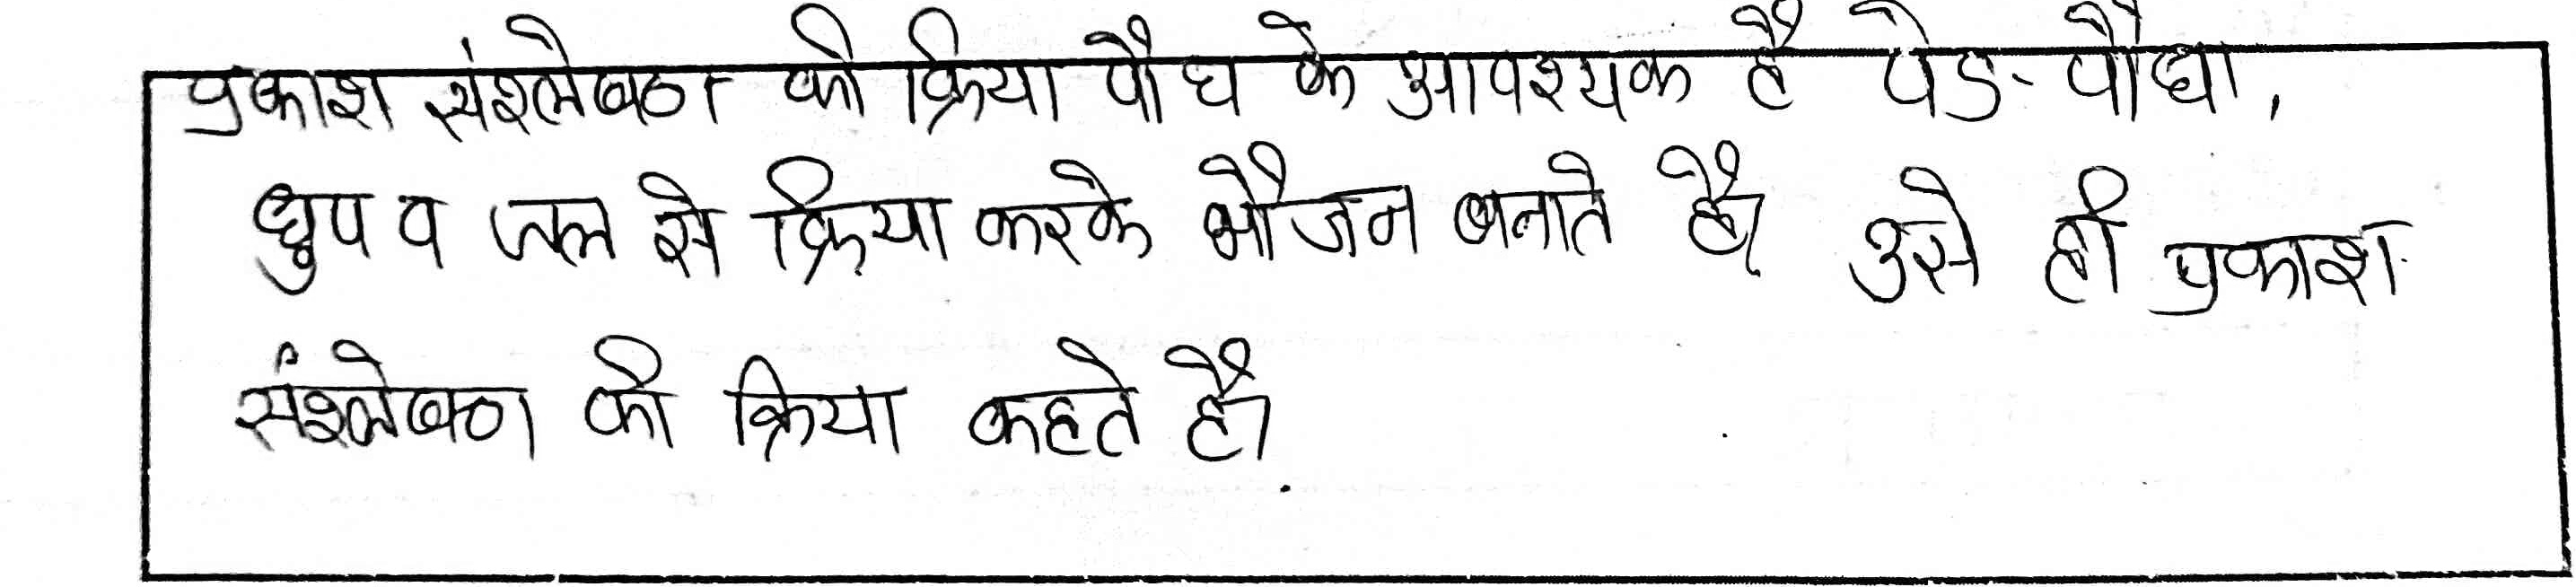 प्रकाश संश्लेषण की क्रिया पौध के आवश्यक है पेड-पौधा,
धुप व जल से क्रिया करके भौजन बनाते है। उसे ही प्रकाश
संश्लेषण की क्रिया कहते है।